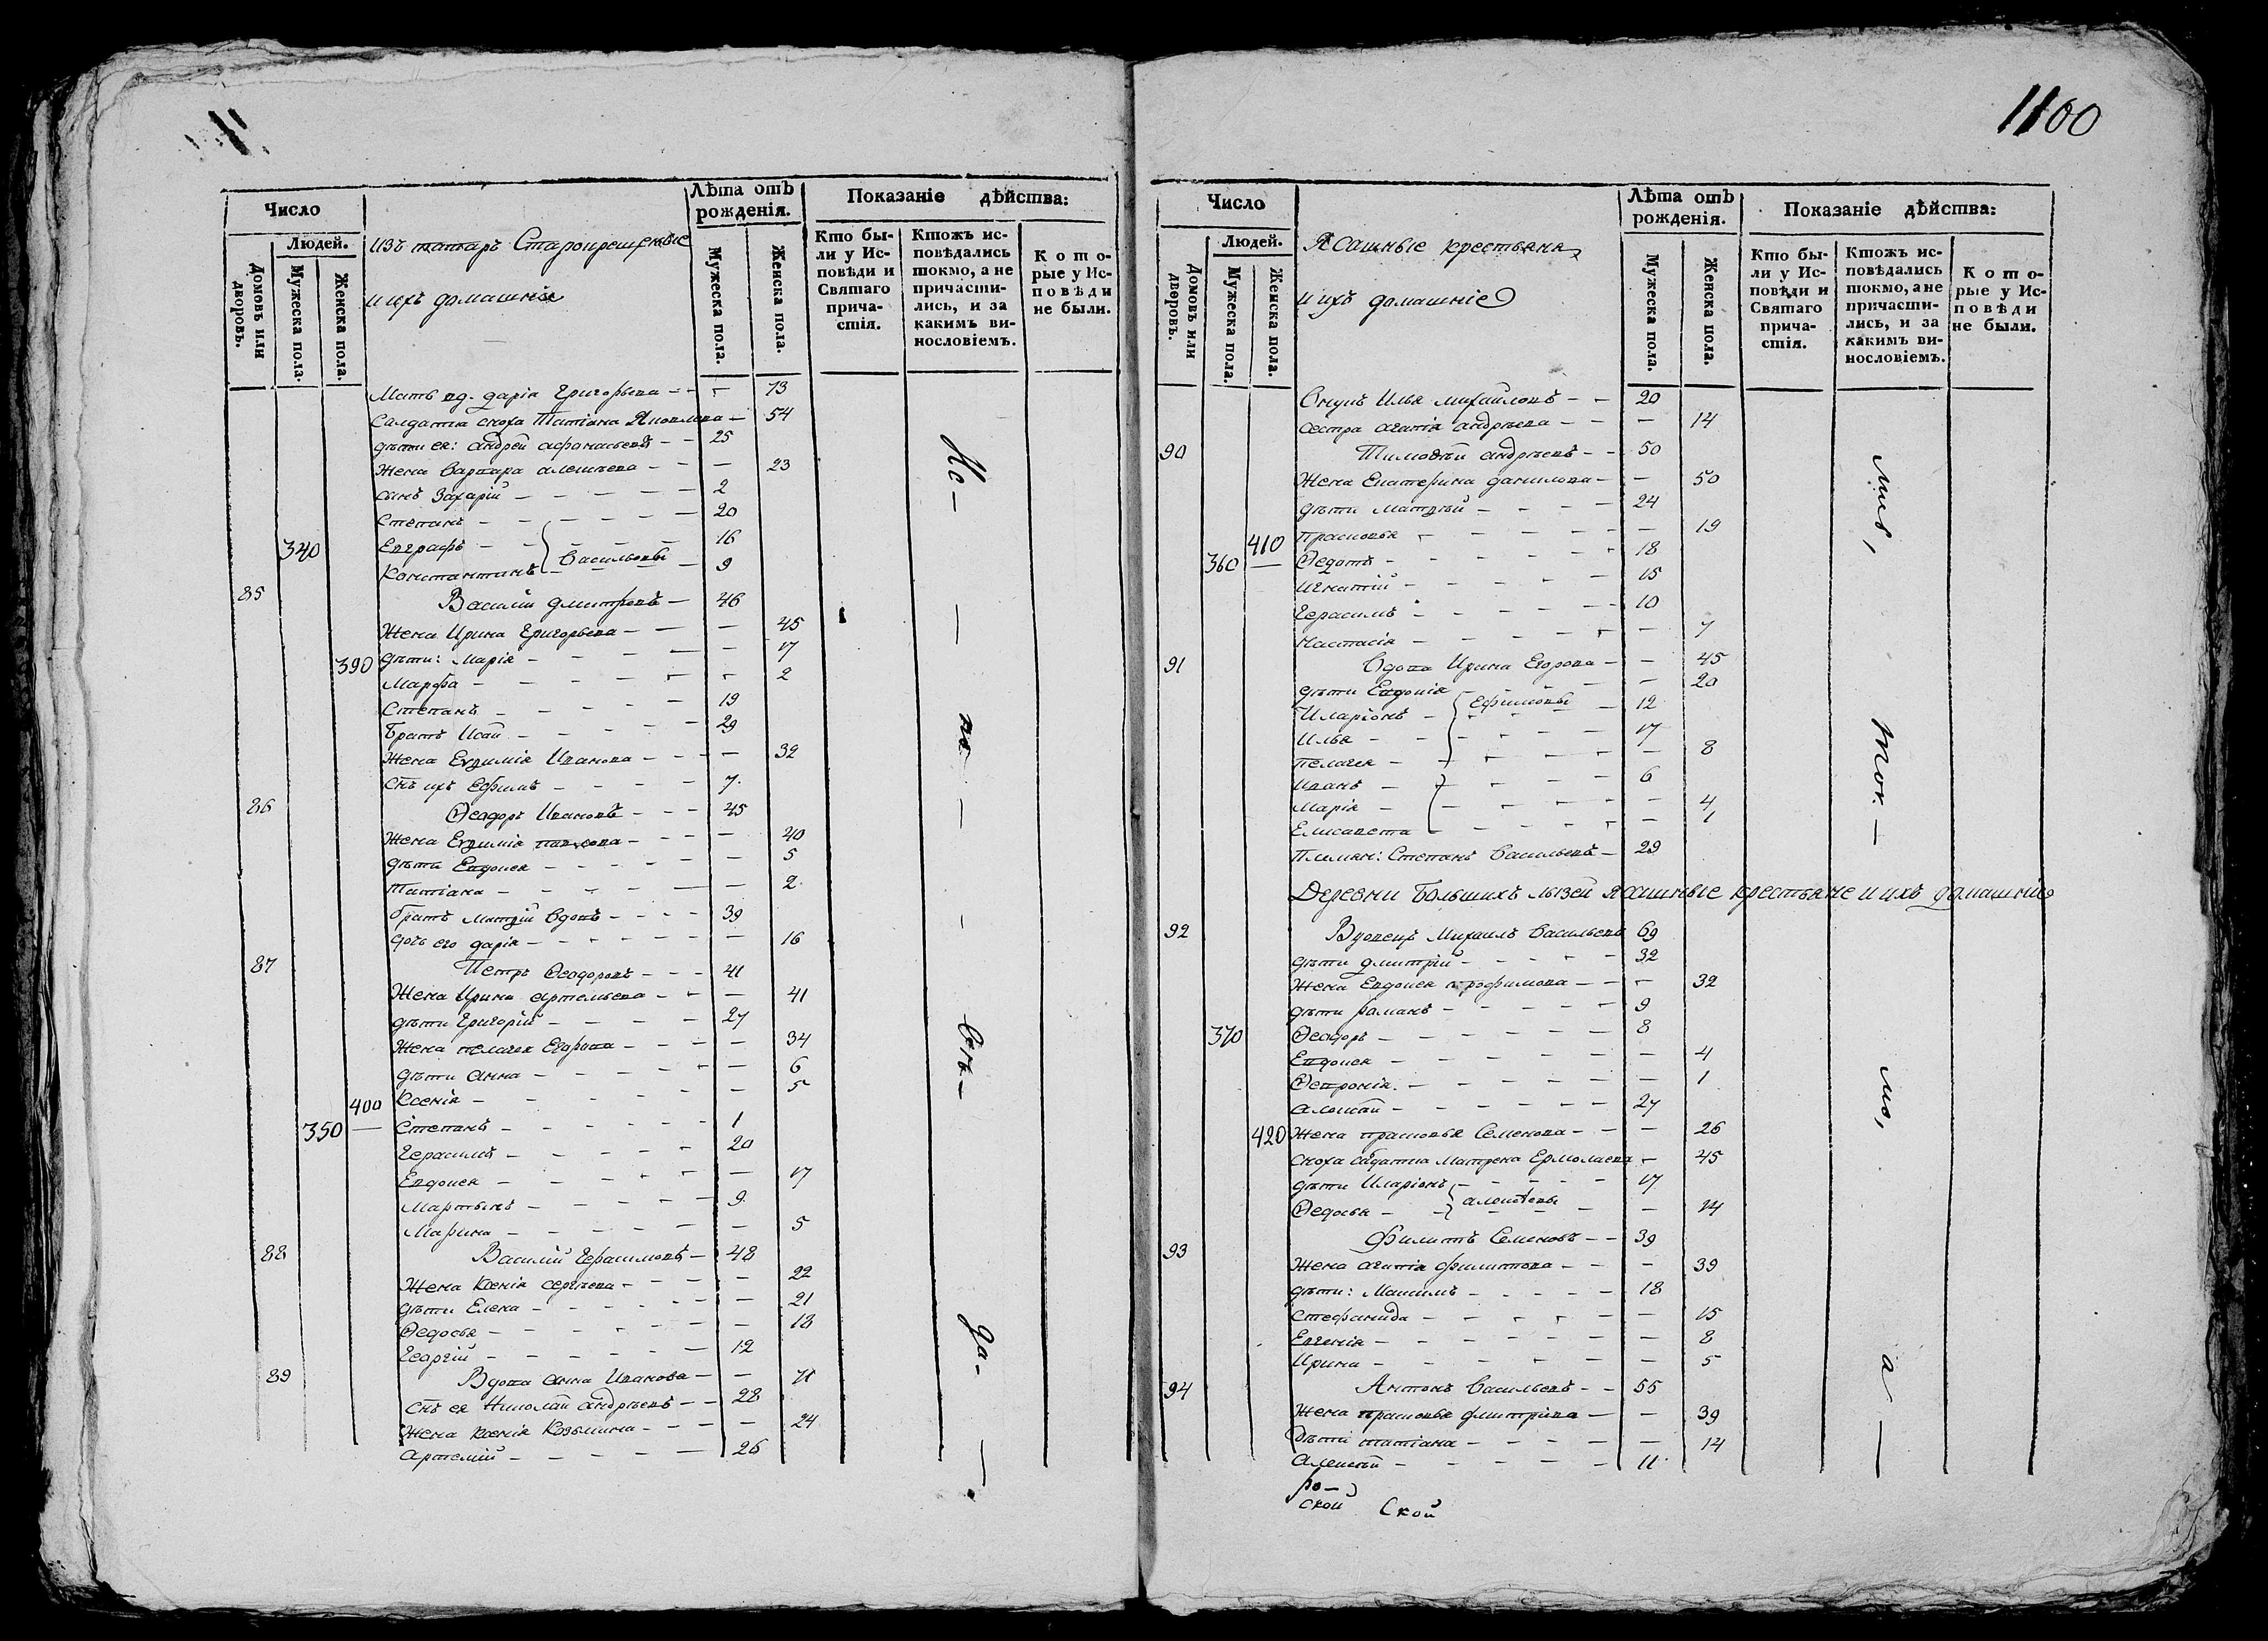 Число
Людей.
Домовъ или дворовъ.
Мужеска пола.
Женска пола.
изъ татаръ Старокрещеные
и ихъ домашніе
Лѣта отъ рожденія.
Мужеска пола.
Женска пола.
Показаніе дѣйства:
Кто были у Исповѣди и Святаго причастія.
Ктожъ исповѣдались токмо, а не причастились, и за какимъ винословіемъ.
Которые у Исповѣди не были.
Мать вд. дарія Григорьева — 73
Салдатка сноха Татіана Яковлева — 54
дѣти ея: андрей афанасьевъ — 25
Жена Варвара алексѣева — 23
сынъ Захарій — 2
Степанъ — 20
Евграфъ — 16
340 Константинъ Васильевы — 9
85 Василій дмитревъ — 46
Жена Ирина Григорьева — 45
дѣти: Марія — 17
390 Марфа — 2
Степанъ — 19
Братъ Исай — 29
Жена Евдимія Иванова — 32
снъ ихъ Ефимъ — 7
86 Ѳеодоръ Ивановъ — 45
Жена Евдимія — 40
дѣти Евдокея — 5
Татіана — 2
братъ Матвѣй Вдовъ — 39
дочь его дарія — 16
87 Петръ Ѳеодоровъ — 41
Жена Ирина артемьева — 41
дѣти Григорій — 27
Жена пелагея Егорова — 34
дѣти анна — 6
400 Ксенія — 5
350 — Степанъ — 1
Герасимъ — 20
Евдокея — 17
Мартынъ — 9
Марина — 5
88 Василій Герасимовъ — 48
Жена Ксенія сергѣева — 22
дѣти Елена — 21
Ѳедосья — 18
Георгій — 12
89 Вдова анна Иванова — 71
снъ ея Николай андрѣевъ — 28
Жена Ксенія Козьмина — 24
Артемій — 26
Ис — по — вѣ — да —
1100
Число
Людей.
Домовъ или дворовъ.
Мужеска пола.
Женска пола.
Ясашные крестьяна
и ихъ домашніе
Лѣта отъ рожденія.
Мужеска пола.
Женска пола.
Показаніе дѣйства:
Кто были у Исповѣди и Святаго причастія.
Ктожъ исповѣдались токмо, а не причастились, и за какимъ винословіемъ.
Которые у Исповѣди не были.
Внукъ Илья михайловъ — 20
сестра агапія андрѣева — 14
90 Тимоѳѣй андрѣевъ — 50
Жена Екатерина данилова — 50
дѣти Матвѣй — 24
410 Прасковья — 19
360 — Ѳедотъ — 18
Игнатій — 15
Герасимъ — 10
Настасія — 7
91 Вдова Ирина Егорова — 45
дѣти Евдокія — 20
Иларіонъ Ефимовы — 12
Илья — 17
пелагея — 8
Иванъ — 6
Марія — 4
Елисавета — 1
Племян: Степанъ Васильевъ — 29
Деревни Большихъ лызей ясашные крестьяне и ихъ домашніе
92 Вдовецъ Михаилъ Васильевъ 69
дѣти дмитрій — 32
Жена Евдокея трофимова — 32
дѣти романъ — 9
370 Ѳеодоръ — 8
Евдокея — 4
Ѳевронія — 1
алексѣй — 27
420 Жена прасковья Семенова — 26
сноха салдатка Матрена Ермолаева — 45
дѣти Иларіонъ — 17
Ѳедосья алексѣевы — 14
93 Филипъ Семеновъ — 39
Жена агапія филиппова — 39
дѣти: Максимъ — 18
Стефанида — 15
Евгенія — 8
Ирина — 5
94 Антонъ Васильевъ — 55
Жена прасковья дмитріева — 39
дѣти татіана — 14
алексѣй — 11
лис, ток — мо, а —
ской Ской